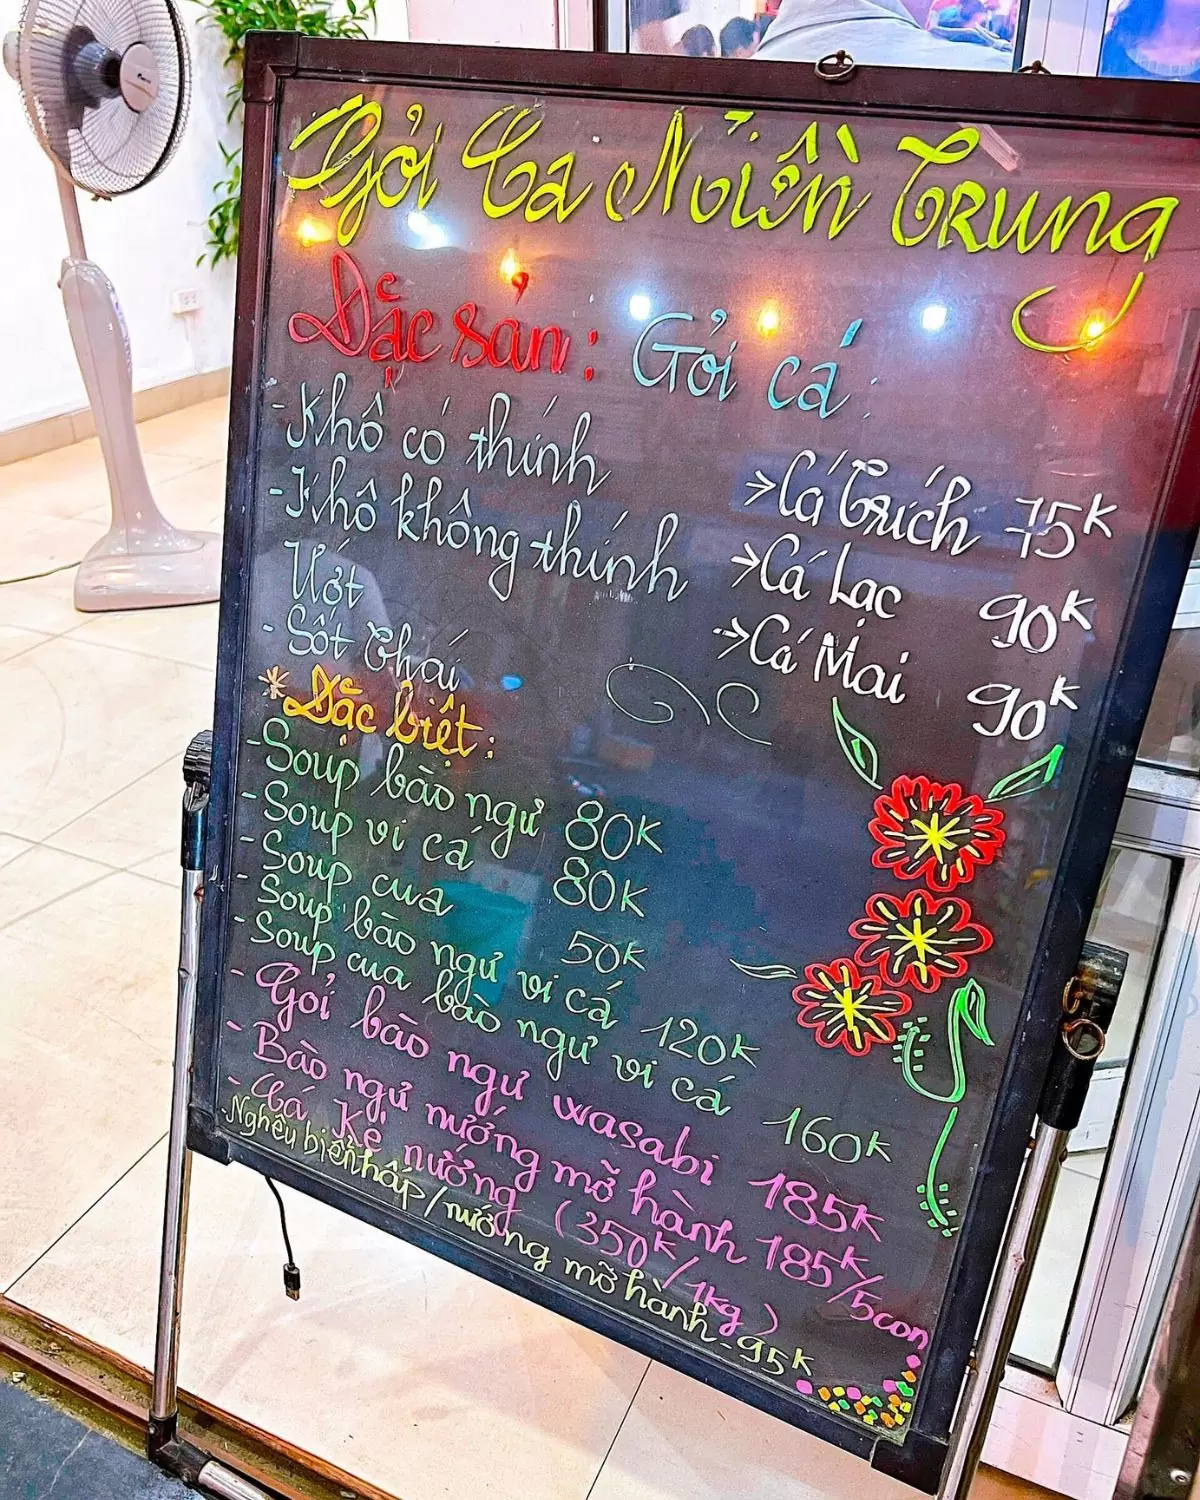 Gỏi Cá Miền Trung
Đặc sản: Gỏi cá:
- Khô có thính
→ Cá Trích 75K
- Khô không thính
→ Cá Lạc 90K
Ướt
→ Cá Mai 90K
- Sốt Thái
* Đặc biệt:
- Soup bào ngư 80K
- Soup vi cá 80K
- Soup cua 50K
- Soup bào ngư vi cá 120K
- Soup cua bào ngư vi cá 160K
- Gỏi bào ngư wasabi 185K
- Bào ngư nướng mỡ hành 185K/5con
- Cá Kè nướng (350K/1kg)
- Nghêu biển hấp/nướng mỡ hành - 95K